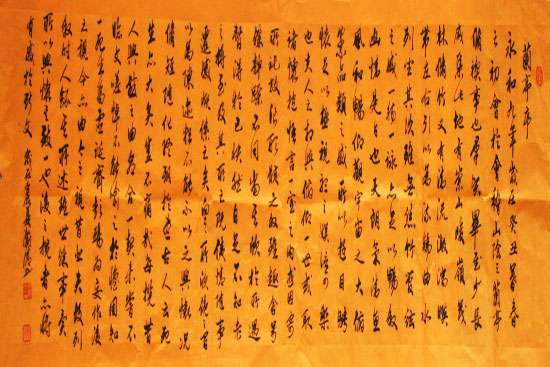 蘭亭序
永和九年歲在癸丑暮春
之初會於會稽山陰之蘭亭
脩禊事也群賢畢至少長
咸集此地有崇山峻領茂
林脩竹又有清流激湍映
帶左右引以為流觴曲水
列坐其次雖無絲竹管弦
之盛一觴一詠亦足以暢敘
幽情是日也天朗氣清惠
風和暢仰觀宇宙之大俯
察品類之盛所以遊目騁
懷足以極視聽之娛信可樂
也夫人之相與俯仰一世或取
諸懷抱悟言一室之內或因寄
所託放浪形骸之外雖趣舍萬
殊靜躁不同當其欣於所遇
暫得於己快然自足不知老
之將至及其所之既倦情隨事
遷感慨係之矣向之所欣俛仰之間
以為陳迹猶不能不以之興懷況
脩短隨化終期於盡古人云死
生亦大矣豈不痛哉每攬昔
人興感之由若合一契未嘗不
臨文嗟悼不能喻之於懷固知
一死生為虛誕齊彭殤為妄作後
之視今亦由今之視昔悲夫故列
敘時人錄其所述雖世殊事異
所以興懷其致一也後之攬者亦將
有感於斯文